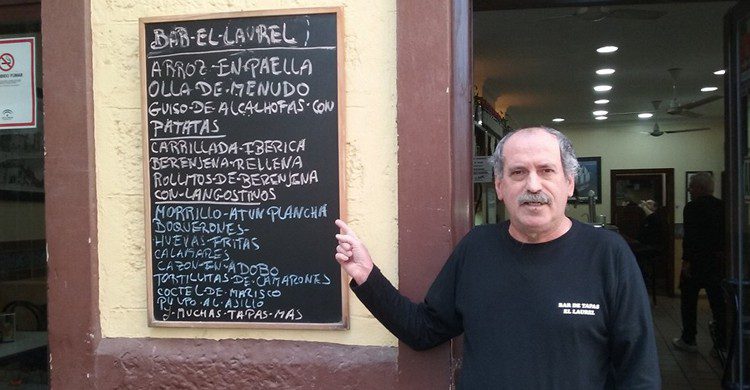 BAR-EL-LAUREL;
ARROZ-EN-PAELLA
OLLA-DE-MENUDO
GUISO-DE-ALCALHOFAS-CON
PATATAS
CARRILLADA-IBERICA
BERENJENA-RELLENA
ROLLITOS-DE-BERENJENA
CON-LANGOSTINOS
MORRILLO-ATUN PLANCHA
BOQUERONES-
HUEVAS-FRITAS
CALAMARES
CAZON-EN-ADOBO
TORTILLITAS-DE-CAMARONES
COCTEL-DE-MARISCO
PULPO-AL-AJILLO
Y-MUCHAS-TAPAS-MAS
BAR DE TAPAS
EL LAUREL